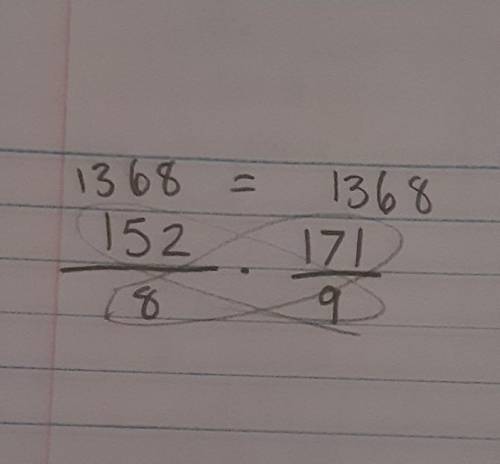 1368 = 1368
152 171
8 · 9